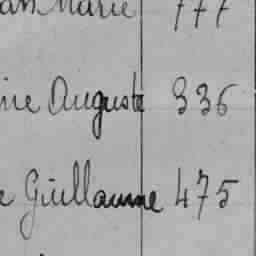 Marie 777
Auguste 336
Guillaume 475